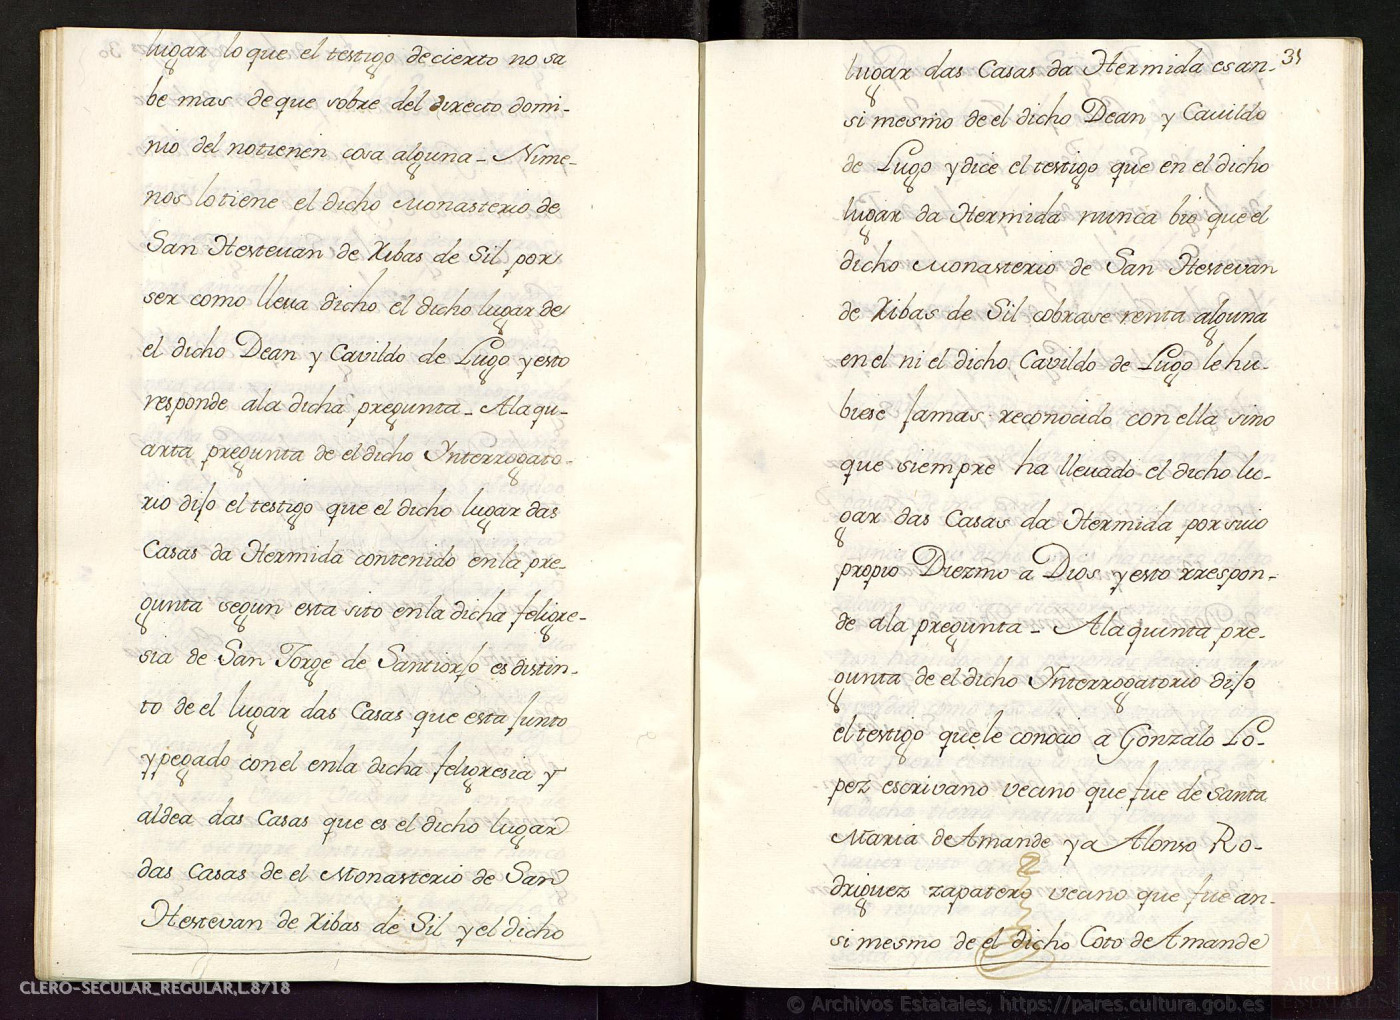 lugar lo que el testigo de cierto no sa
be mas de que sobre del directo domi-
nio del no tienen cosa alguna - Nime-
nos lo tiene el dicho Monasterio de
San Hestevan de Ribas de Sil por
ser como lleva dicho el dicho lugar de
el dicho Dean y Cavildo de Lugo y esto
responde ala dicha pregunta - Ala qu-
arta pregunta de el dicho Ynterrogato-
rio dijo el testigo que el dicho lugar das
Casas da Hermida contenido en la pre-
gunta segun esta sito en la dicha feligre-
sia de San Jorge de Santiorjo es distin-
to de el lugar das Casas que esta junto
y pegado con el en la dicha feligresia y
aldea das Casas que es el dicho lugar
das Casas de el Monasterio de San
Hestevan de Ribas de Sil y el dicho
31
lugar das Casas da Hermida es an-
si mesmo de el dicho Dean y Cavildo
de Lugo y dice el testigo que en el dicho
lugar da Hermida nunca bio que el
dicho Monasterio de San Hestevan
de Ribas de Sil cobrase renta alguna
en el ni el dicho Cavildo de Lugo le hu-
biese jamas reconocido con ella sino
que siempre ha llevado el dicho lu-
gar das Casas da Hermida por suio
propio Diezmo a Dios y esto rrespon-
de ala pregunta - Ala quinta pre-
gunta de el dicho Ynterrogatorio dijo
el testigo que le conocio a Gonzalo Lo-
pez escrivano vecino que fue de Santa
Maria de Amande y a Alonso Ro-
driguez zapatero vecino que fue an-
si mesmo de el dicho Coto de Amande
CLERO-SECULAR_REGULAR,L.8718
© Archivos Estatales, https://pares.cultura.gob.es
A
ARCHIVOS
ESTATALES